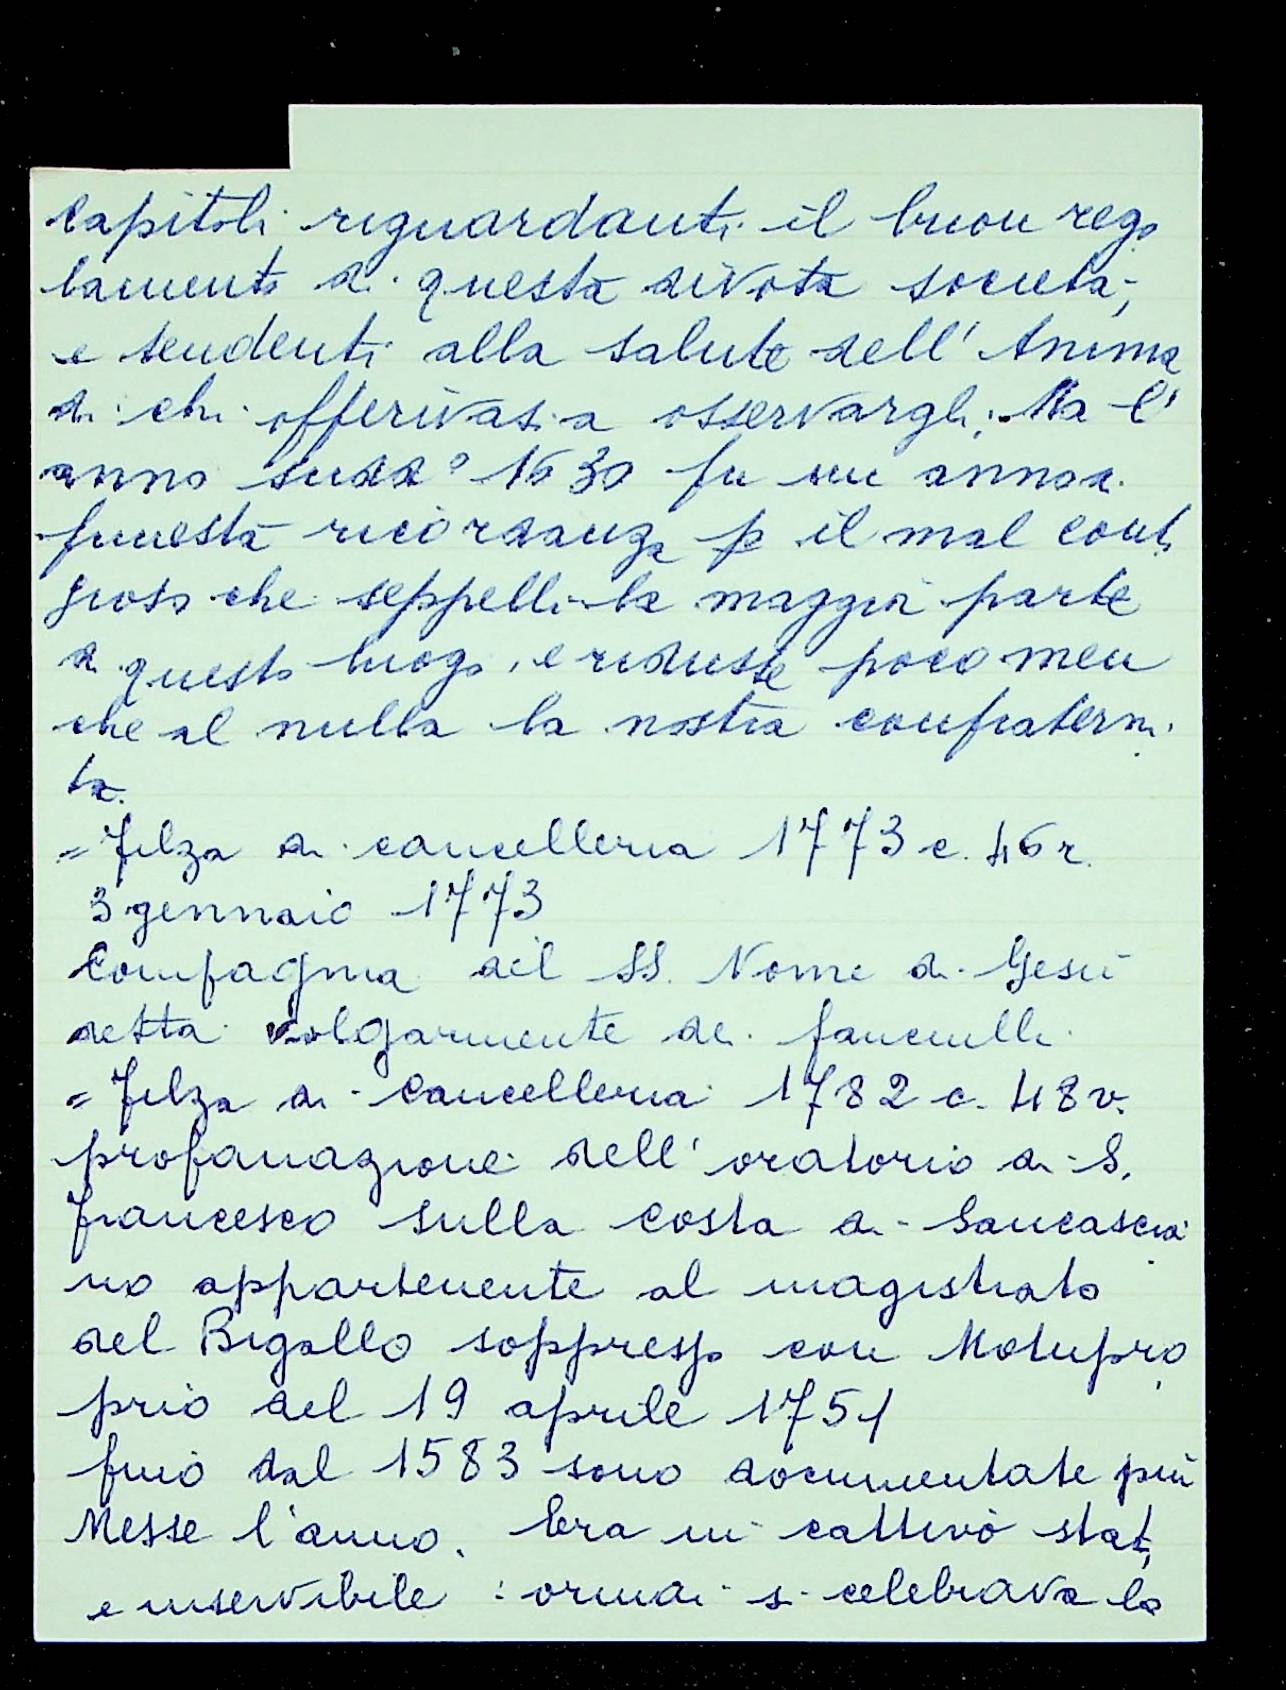 Capitoli riguardanti il buon rego
lamento di questa divota società,
e tendenti alla salute dell'Anima
di chi offerivasi a osservargli. Ma l'
anno sudd° 1630 fu un anno di
funesta ricordanza p il mal conta
gioso che seppellì la maggior parte
di questo luogo, e ridusse poco men
che al nulla la nostra confraterni
tà.
= Filza di cancelleria 1773 c. 46 r.
3 gennaio 1773
Compagnia del SS. Nome di Gesù
detta volgarmente dei fanciulli
= Filza di Cancelleria 1782 c. 48 v.
profanazione dell'oratorio di S.
Francesco sulla costa di Sancascia
no appartenente al magistrato
del Bigallo soppresso con Motupro
prio del 19 aprile 1751
fino dal 1583 sono documentate più
Messe l'anno. Era in cattivo stato
e inservibile : ormai si celebrava la